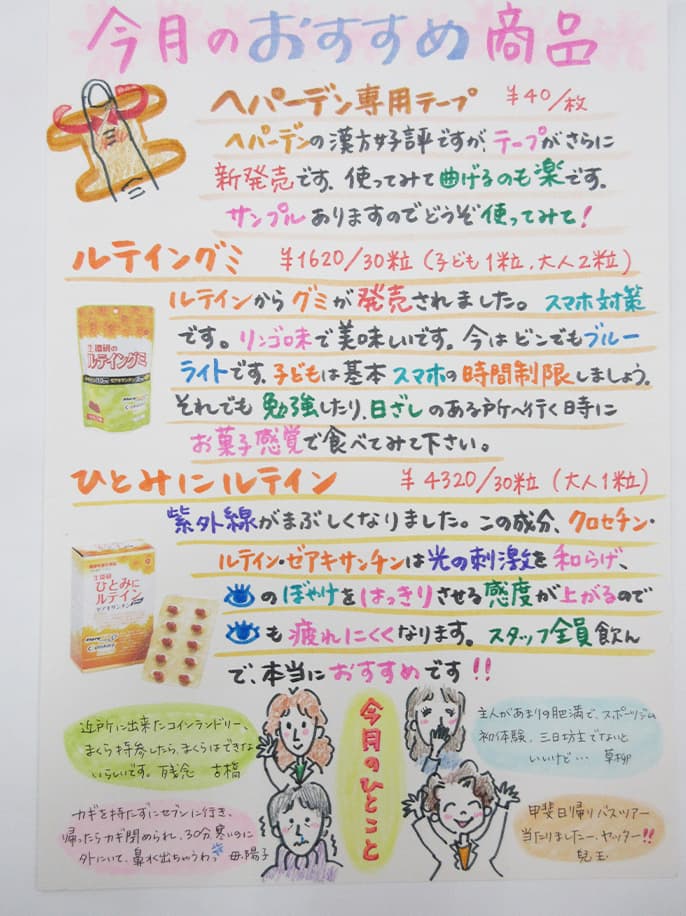 今月のおすすめ商品
ヘバーデン専用テープ ¥40/枚
ヘバーデンの漢方好評ですが、テープがさらに
新発売です。使ってみて曲げるのも楽です。
サンプルありますのでどうぞ使ってみて!
ルテイングミ ¥1620/30粒(子ども1粒、大人2粒)
ルテインからグミが発売されました。スマホ対策
です。リンゴ味で美味しいです。今はどこでもブルー
ライトです。子どもは基本スマホの時間制限しましょう。
それでも勉強したり、日ざしのある所へ行く時に
お菓子感覚で食べてみて下さい。
生環研の
ルテイングミ
ひとみにルテイン ¥4320/30粒(大人1粒)
紫外線がまぶしくなりました。この成分、クロセチン・
ルテイン・ゼアキサンチンは光の刺激を和らげ、
のぼやけをはっきりさせる感度が上がるので
も疲れにくくなります。スタッフ全員飲ん
で、本当におすすめです!!
生環研
ひとみに
ルテイン
ゼアキサンチン
今月のひとこと
近所に出来たコインランドリー、
まくら持参したら、まくらはできな
いらしいです。残念 古橋
主人があまりの肥満で、スポーツジム
初体験、三日坊主でないと
いいけど… 草柳
カギを持たずにセブンに行き、
帰ったらカギ閉められ、30分寒いのに
外にいて、鼻水出ちゃうわっ 毋陽子
甲斐日帰りバスツアー
当たりましたー、ヤッター!!
児玉